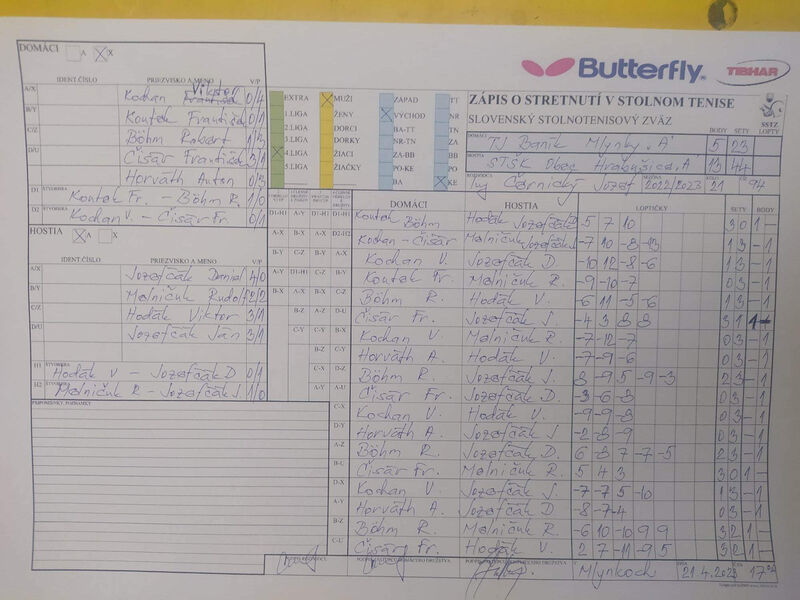 DOMÁCI A X
IDENT.ČÍSLO PRIEZVISKO A MENO V/P
A/X Kochan Viktor 0/4
B/Y Koutek František 0/1
C/Z Böhm Robert 1/3
D/U Čisár František 3/1
Horváth Anton 0/3
D1 ŠTVORHRA Koutek Fr. - Böhm R. 1/0
D2 Kochan V. - Čisár Fr. 0/1
HOSTIA A X
IDENT.ČÍSLO PRIEZVISKO A MENO V/P
A/X Jozefčák Daniel 4/0
B/Y Melničuk Rudolf 2/2
C/Z Hodák Viktor 3/1
D/U Jozefčák Ján 3/1
H1 ŠTVORHRA Hodák V - Jozefčák D 0/1
H2 ŠTVORHRA Melničuk R - Jozefčák J. 1/0
PRIPOMIENKY, POZNÁMKY
EXTRA MUŽI ZÁPAD TT
1.LIGA ŽENY VÝCHOD NR
2.LIGA DORCI BA-TT TN
3.LIGA DORKY NR-TN ZA
4.LIGA ŽIACI ZA-BB BB
5.LIGA ŽIAČKY PO-KE PO
BA KE
Butterfly
TIBHAR
ZÁPIS O STRETNUTÍ V STOLNOM TENISE
SLOVENSKÝ STOLNOTENISOVÝ ZVÄZ
SSTZ
BODY SETY LOPTY
DOMÁCI TJ Baník Mlynky "A" 5 23
HOSTIA STŠK Obec Hrabušice A 13 44
ROZHODCA Ing Černický Jozef 2022/2023 21 94
DOMÁCI HOSTIA LOPTIČKY SETY BODY
D1-H1 Koutek Böhm Hodák Jozefčák D 5 7 10 3 0 1 -
D2-H2 Kochan - Čisár Melničuk Jozefčák J. -7 10 -8 -13 1 3 - 1
A-X Kochan V. Jozefčák D -10 12 -8 -6 1 3 - 1
B-Y Koutek Fr. Melničuk R. -9 -10 -7 0 3 - 1
C-Z Böhm R. Hodák V. -6 11 -5 -6 1 3 - 1
D-U Čisár Fr. Jozefčák J. -4 3 8 8 3 1 1 -
A-Y Kochan V. Melničuk R. -7 -12 -7 0 3 - 1
B-Z Horváth A. Hodák V. -7 -9 -6 0 3 - 1
C-U Böhm R. Jozefčák J. 8 -9 5 -9 -3 2 3 - 1
D-X Čisár Fr. Jozefčák D. -3 -6 -8 0 3 - 1
Kochan V. Hodák V. -9 -9 -8 0 3 - 1
Horváth A. Jozefčák J -2 -8 -9 0 3 - 1
Böhm R. Jozefčák D. 6 8 -7 -7 -5 2 3 - 1
Čisár Fr. Melničuk R. 5 4 3 3 0 1 -
Kochan V. Jozefčák J. -7 -7 5 -10 1 3 - 1
Horváth A. Jozefčák D -8 -7 -4 0 3 - 1
Böhm R. Melničuk R. -6 10 -10 9 9 3 2 1 -
Čisár Fr. Hodák V. 2 7 -11 -9 5 3 2 1 -
V Mlynkoch DŇA 21.4.2023 17